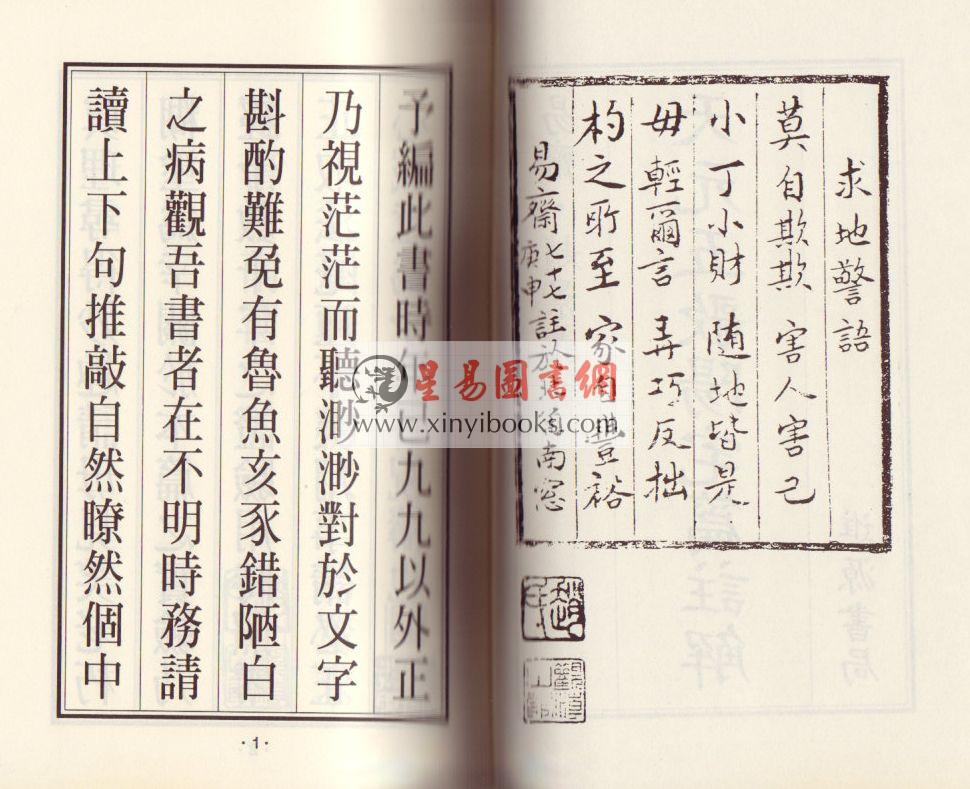 求地警語
莫自欺欺 害人害己
小丁小財 随地皆是
毋輕爾言 弄巧反拙
杓之所至 家自豊裕
易齋 七十七 庚申 註於 南窓
予編此書時年已九九以外正
乃視茫茫而聽渺渺對於文字
斟酌難免有魯魚亥豕錯陋白
之病觀吾書者在不明時務請
讀上下句推敲自然瞭然個中
·1·
星易圖書網
www.xinyibooks.com